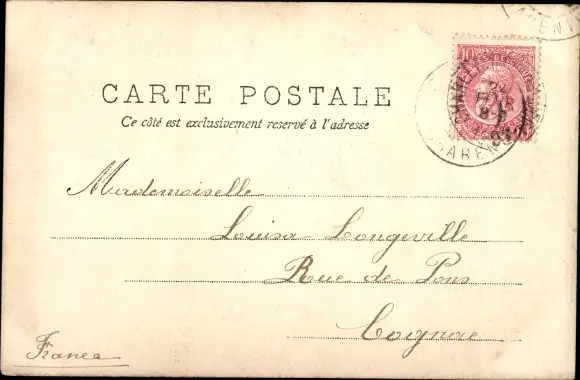 CARTE POSTALE
Ce côté est exclusivement reservé à l'adresse
10
Mademoiselle
Louisa Longeville
Rue de Pons
Cognac
France